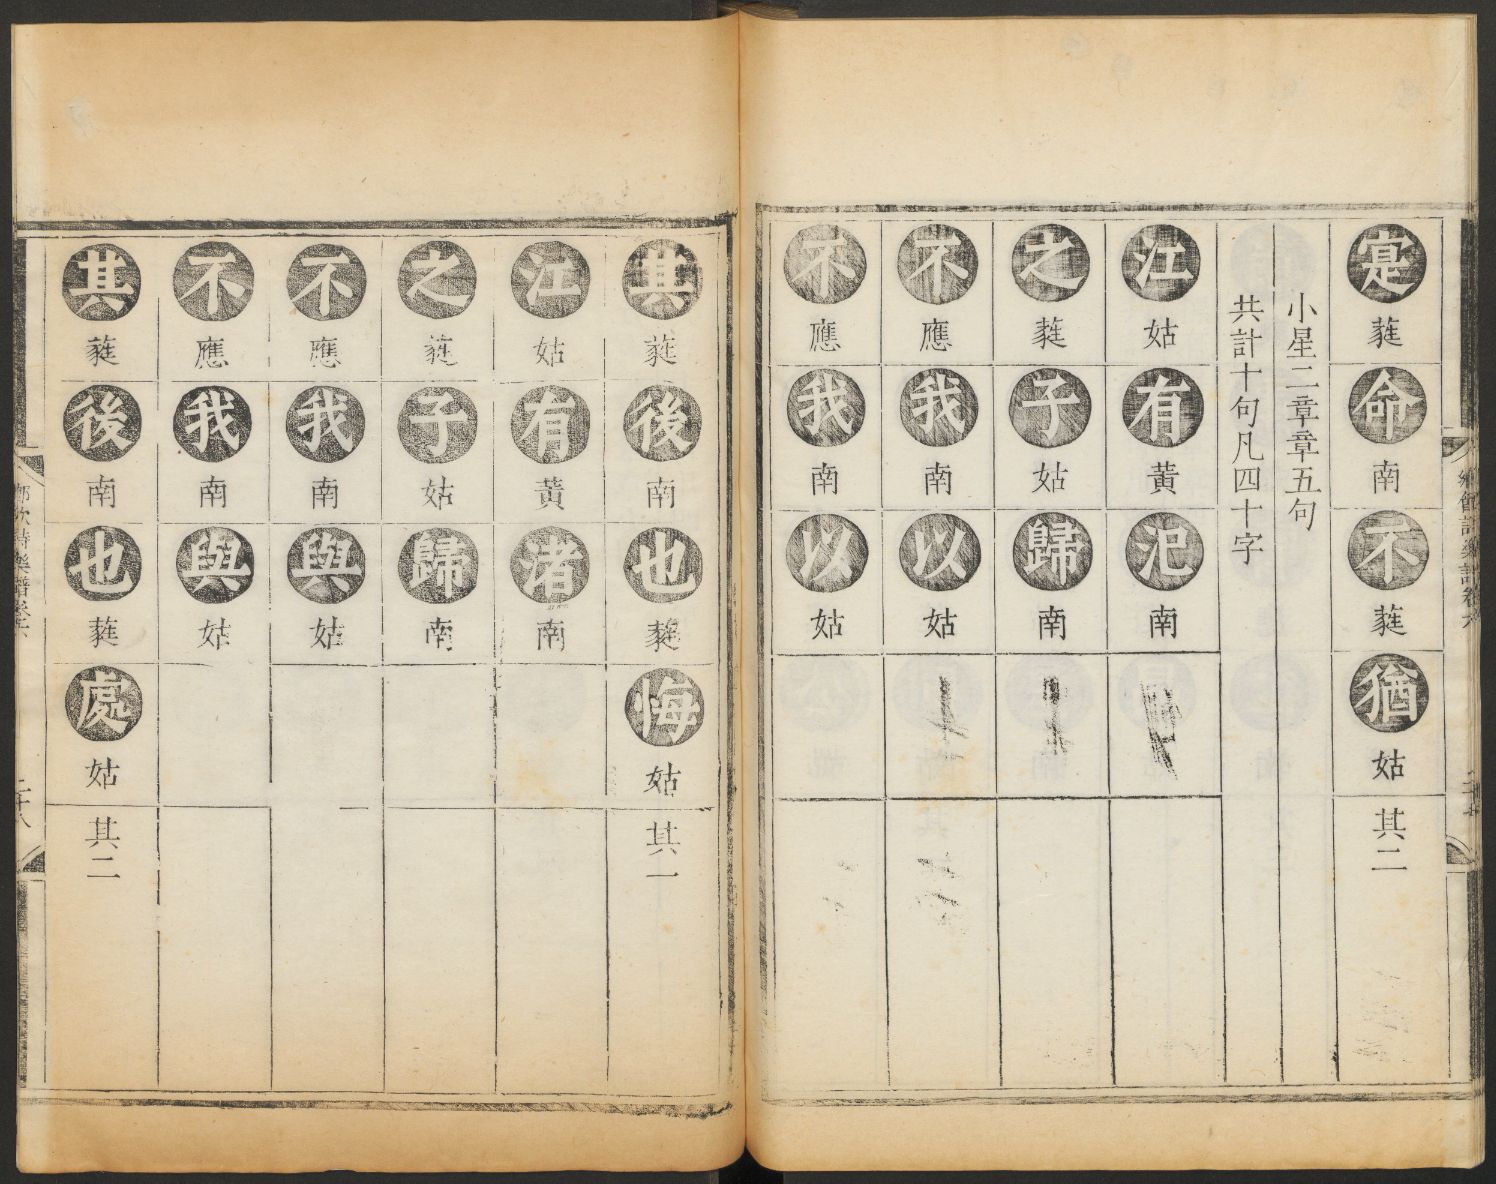 寔蕤命南不蕤猶姑其二
小星二章章五句
共計十句凡四十字
江姑有黃汜南
之蕤子姑歸南
不應我南以姑
不應我南以姑
其蕤後南也蕤悔姑其一
江姑有黃渚南
之蕤子姑歸南
不應我南與姑
不應我南與姑
其蕤後南也蕤處姑其二